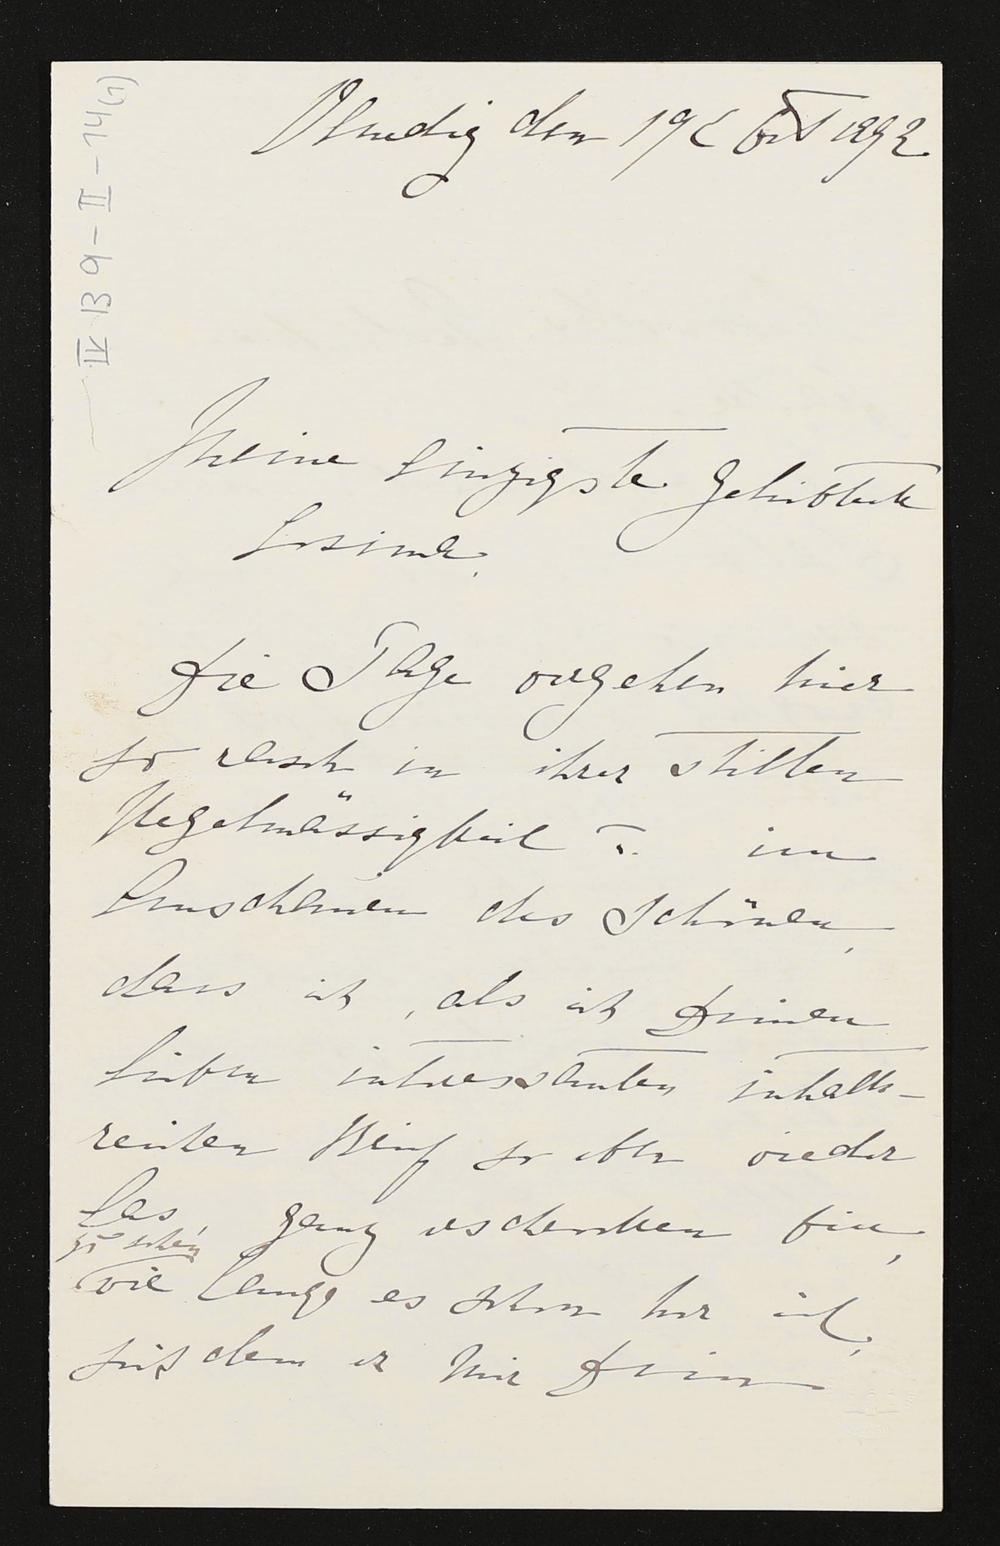 IV B 9 - II - 14 (1)
Venedig den 19t Oct 1892
Meine Einzigste Geliebteste
Cosima.
Die Tage vergehen hier
so rasch in ihrer stillen
Regelmässigkeit u. im
Anschauen des Schönen,
dass ich, als ich Deinen
lieben intressanten inhalts-
reichen Brief so eben wieder
las, ganz erschrocken bin,
zu sehen
wie lange es schon her ist,
seit dem er mir Dein